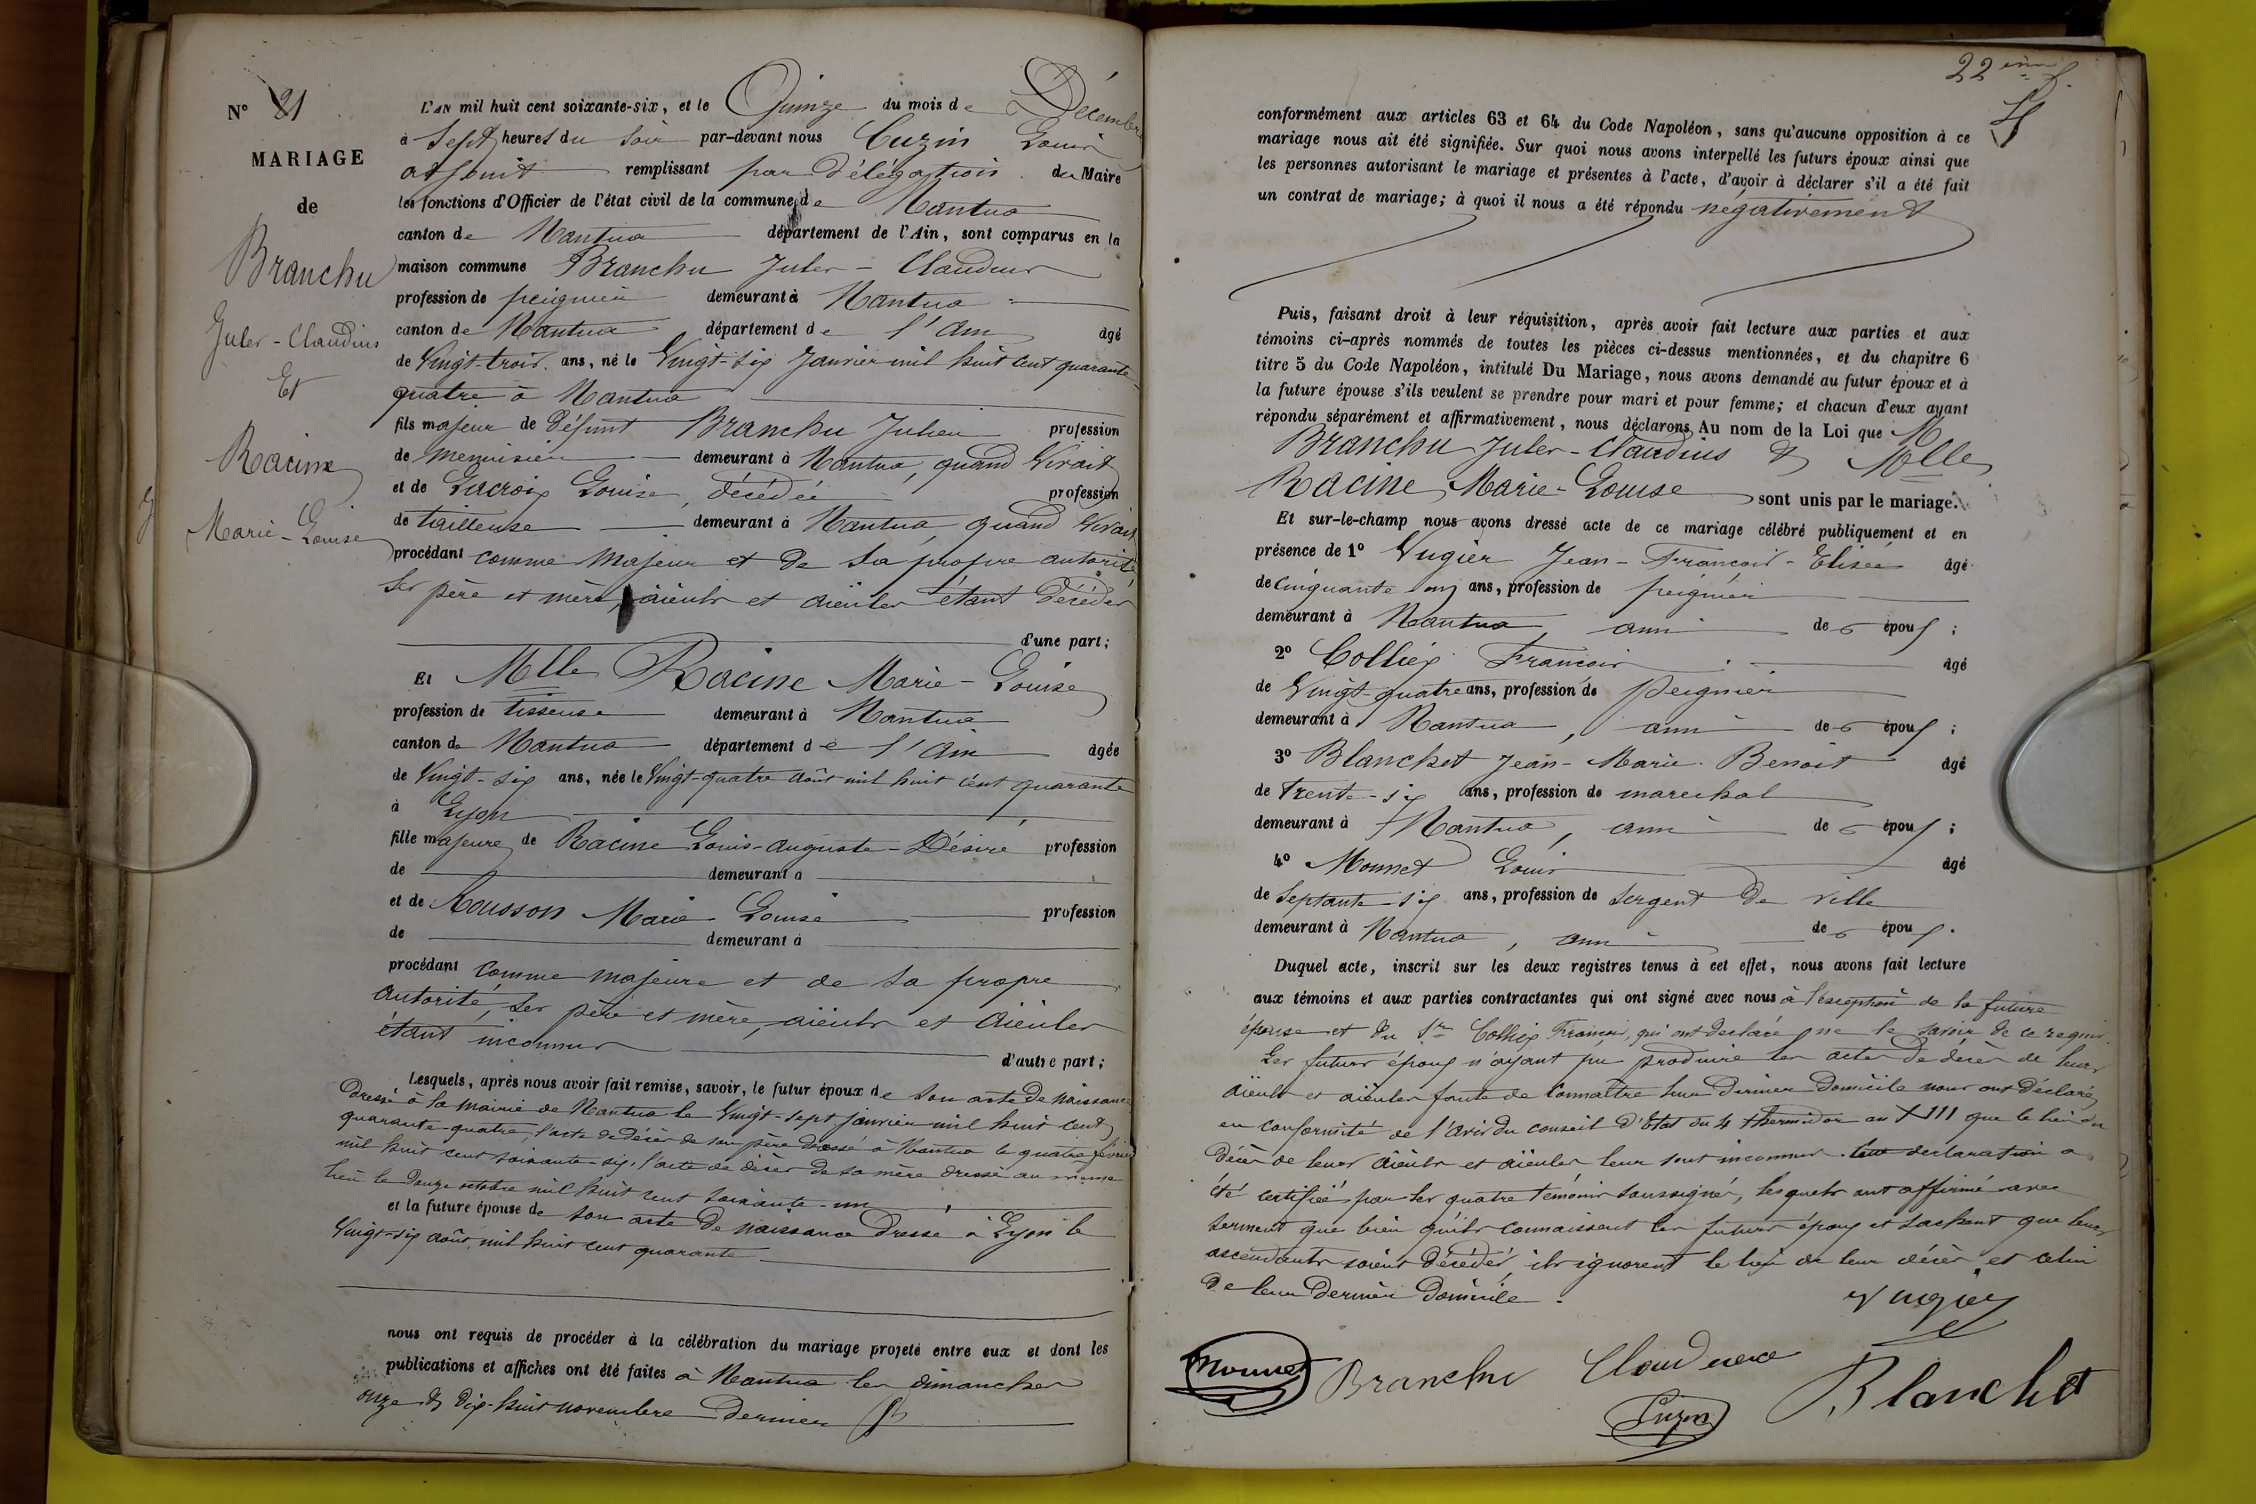 N° 21
MARIAGE
de
Branchu
Jules-Claudius
Et
Racine
Marie-Louise
L'AN mil huit cent soixante-six, et le Quinze du mois de Décembre
à Sept heures du soir par-devant nous Cuzin Louis
adjoint remplissant par délégation du Maire
les fonctions d'Officier de l'état civil de la commune de Nantua
canton de Nantua département de l'Ain, sont comparus en la
maison commune Branchu Jules-Claudius
profession de peignier demeurant à Nantua
canton de Nantua département de l'Ain âgé
de Vingt-trois ans, né le Vingt-six Janvier mil huit cent quarante-
quatre à Nantua
fils majeur de défunt Branchu Julien profession
de menuisier demeurant à Nantua, quand vivait
et de Lacroix Louise, décédée profession
de tailleuse demeurant à Nantua, quand vivait
procédant comme majeur et de sa propre autorité
ses père et mère, aïeuls et aïeules étant décédés
d'une part;
Et Mlle Racine Marie-Louise
profession de tisseuse demeurant à Nantua
canton de Nantua département de l'Ain âgée
de Vingt-six ans, née le Vingt-quatre août mil huit cent quarante
à Lyon
fille majeure de Racine Louis-auguste-Désiré profession
de demeurant à
et de Mousson Marie-Louise profession
de demeurant à
procédant comme majeure et de sa propre
autorité, ses père et mère, aïeuls et aïeules
étant inconnus
d'autre part;
Lesquels, après nous avoir fait remise, savoir, le futur époux de son acte de naissance
dressé à la mairie de Nantua le Vingt-sept janvier mil huit cent
quarante-quatre, l'acte de décès de son père dressé à Nantua le quatre février
mil huit cent soixante-six, l'acte de décès de sa mère dressé au même
lieu le douze octobre mil huit cent soixante-un
et la future épouse de son acte de naissance dressé à Lyon le
Vingt-six août mil huit cent quarante
nous ont requis de procéder à la célébration du mariage projeté entre eux et dont les
publications et affiches ont été faites à Nantua les dimanches
onze & dix-huit novembre dernier
22ème
conformément aux articles 63 et 64 du Code Napoléon, sans qu'aucune opposition à ce
mariage nous ait été signifiée. Sur quoi nous avons interpellé les futurs époux ainsi que
les personnes autorisant le mariage et présentes à l'acte, d'avoir à déclarer s'il a été fait
un contrat de mariage; à quoi il nous a été répondu négativement
Puis, faisant droit à leur réquisition, après avoir fait lecture aux parties et aux
témoins ci-après nommés de toutes les pièces ci-dessus mentionnées, et du chapitre 6
titre 5 du Code Napoléon, intitulé Du Mariage, nous avons demandé au futur époux et à
la future épouse s'ils veulent se prendre pour mari et pour femme; et chacun d'eux ayant
répondu séparément et affirmativement, nous déclarons Au nom de la Loi que M
Branchu Jules-Claudius & Mlle
Racine Marie-Louise sont unis par le mariage.
Et sur-le-champ nous avons dressé acte de ce mariage célébré publiquement et en
présence de 1° Vugier Jean-François-Elisée âgé
de Cinquante ans, profession de peignier
demeurant à Nantua, ami des époux;
2° Colliex François âgé
de Vingt-quatre ans, profession de peignier
demeurant à Nantua, ami des époux;
3° Blanchet Jean-Marie-Benoit âgé
de trente-six ans, profession de marechal
demeurant à Nantua, ami des époux;
4° Monnet Louis âgé
de Septante-six ans, profession de sergent de ville
demeurant à Nantua, ami des époux.
Duquel acte, inscrit sur les deux registres tenus à cet effet, nous avons fait lecture
aux témoins et aux parties contractantes qui ont signé avec nous à l'exception de la future
épouse et du Sr Colliex François, qui ont declaré ne le savoir de ce requis.
Les futurs époux n'ayant pu produire les actes de décès de leurs
aïeuls et aïeules faute de connaître leur dernier domicile nous ont déclaré
en conformité de l'avis du conseil d'Etat du 4 thermidor an XIII que le lieu du
décès de leurs aïeuls et aïeules leur sont inconnus. Cette declaration a
été certifiée par les quatre témoins soussignés, lesquels ont affirmé avec
serment que bien qu'ils connaissent les futurs époux et sachant que leurs
ascendants soient décédés, ils ignorent le lieu de leur décès et celui
de leur dernier domicile.
Vugier
Monnet Branchu Claudius
Cuzin Blanchet